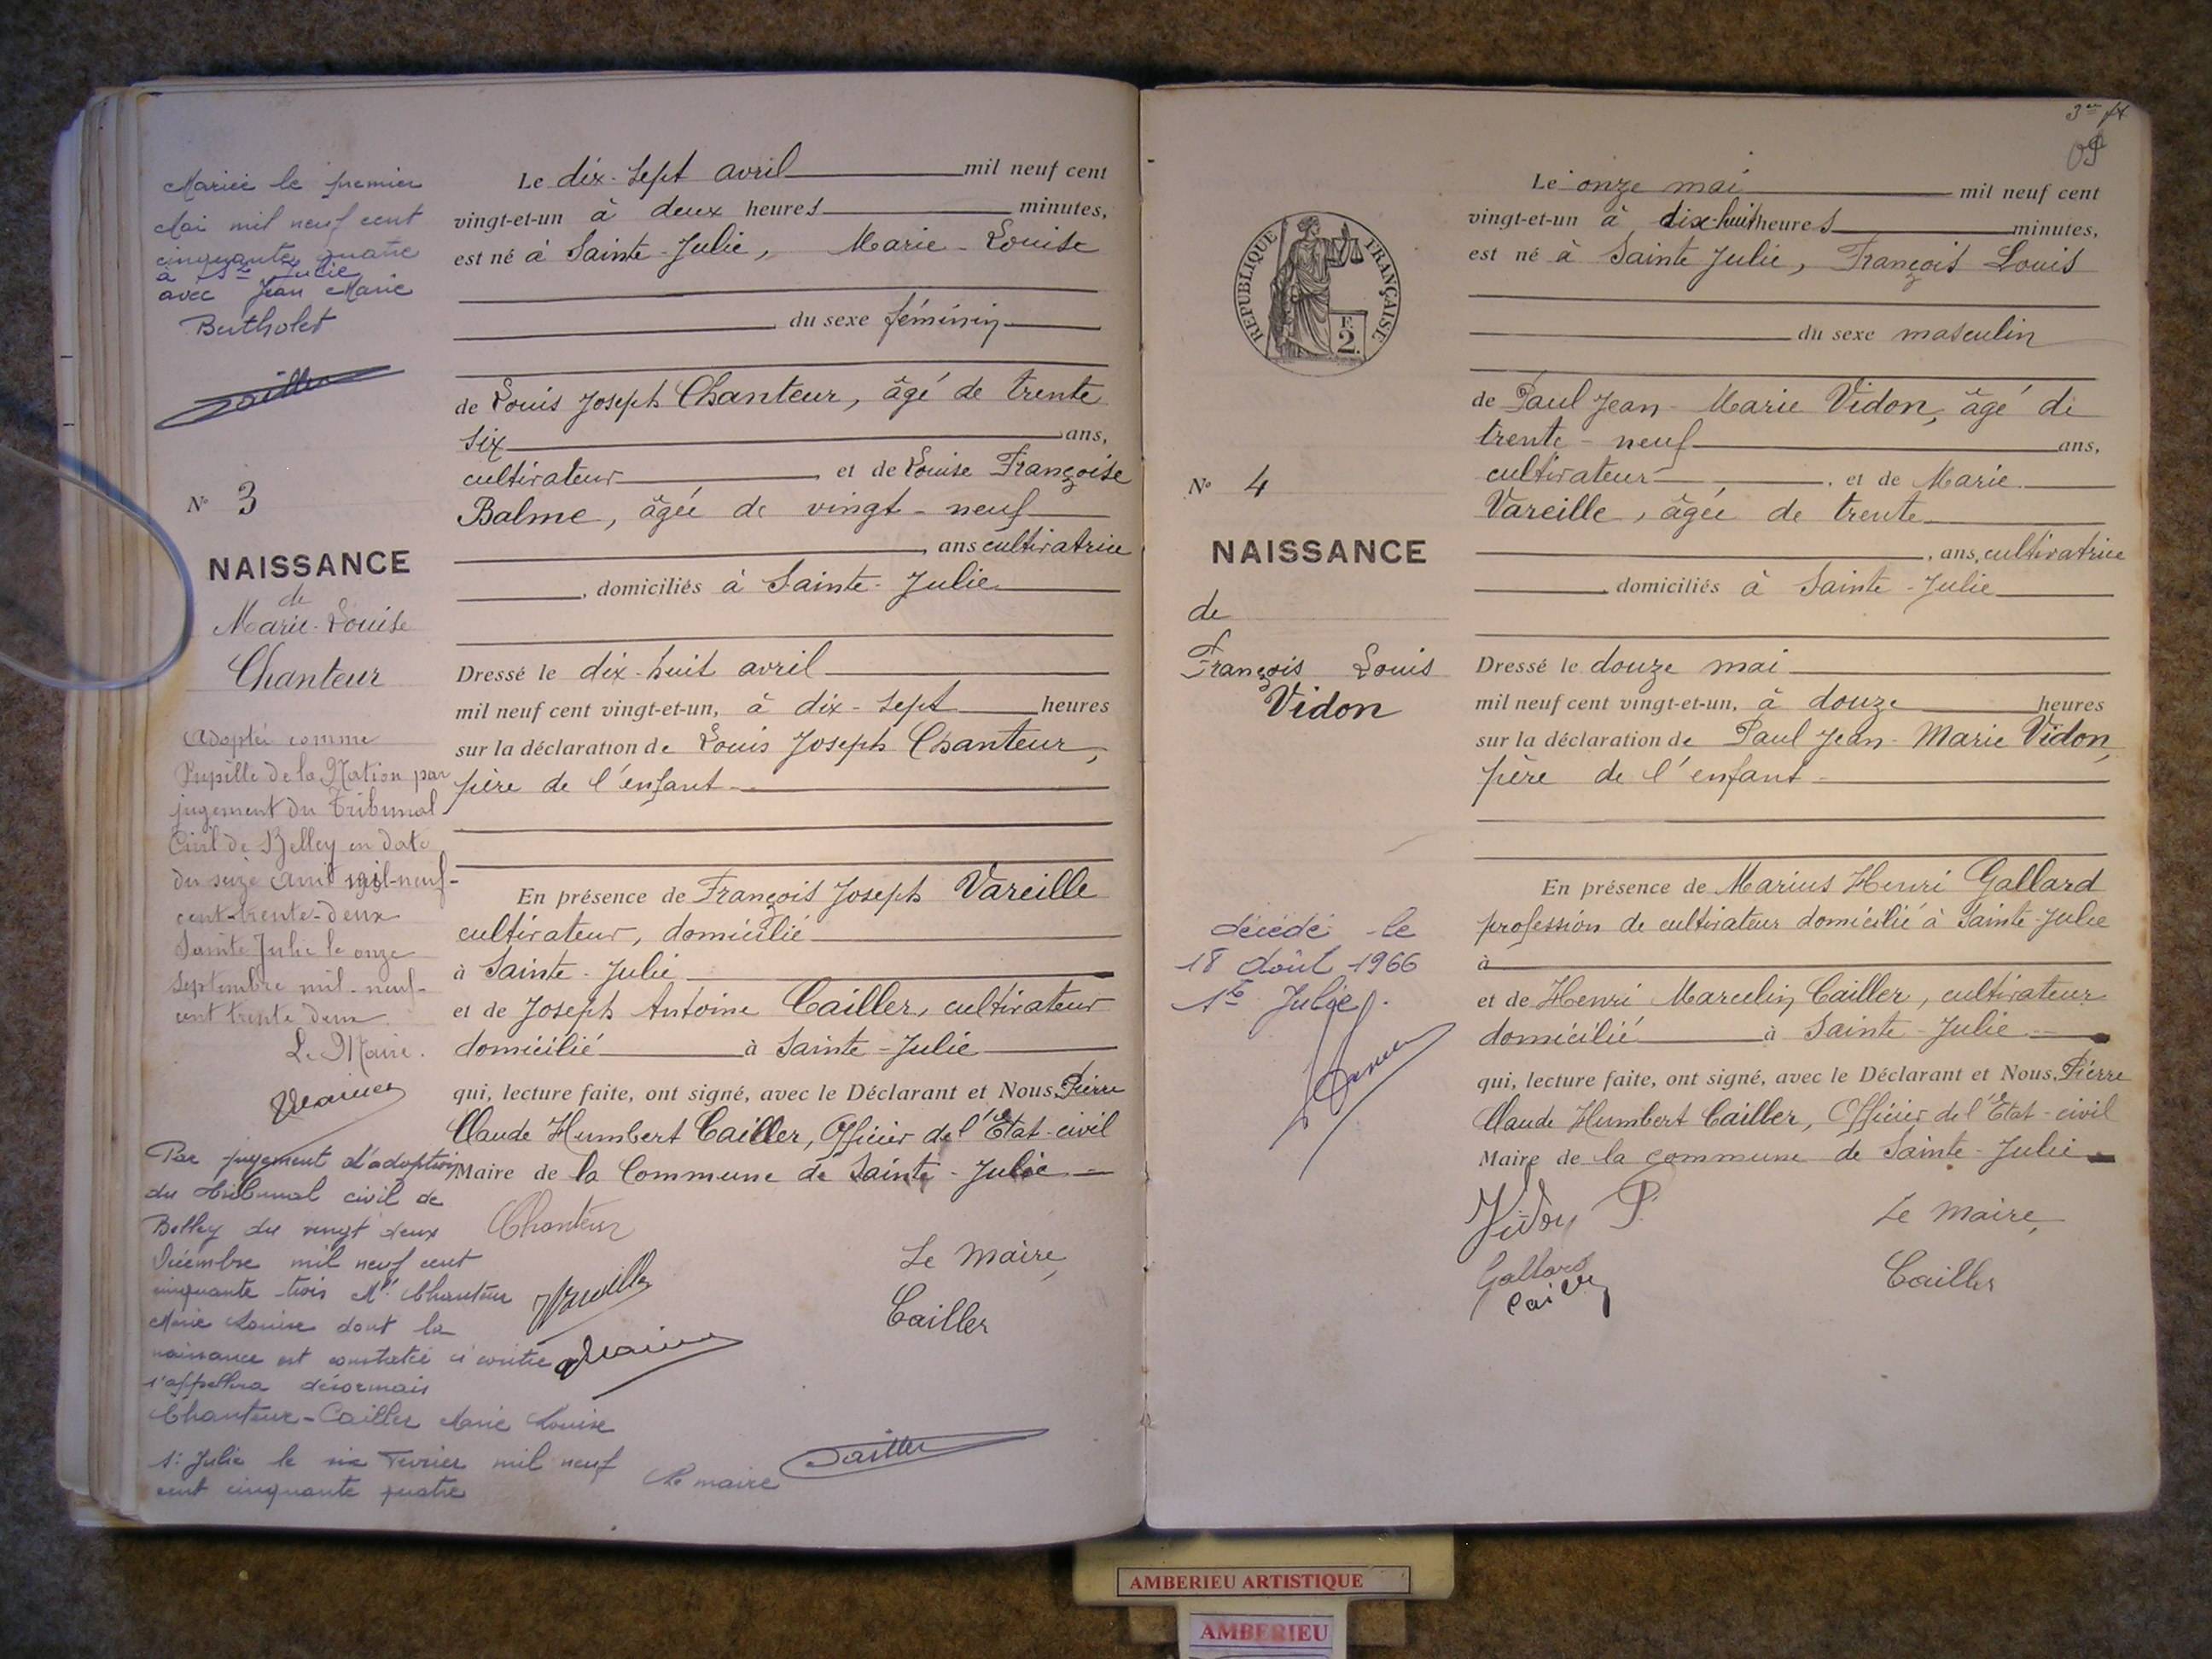 Mariée le premier
Mai mil neuf cent
cinquante quatre
à Ste Julie
avec Jean Marie
Bertholet
N° 3
NAISSANCE
de
Marie-Louise
Chanteur
Adoptée comme
Pupille de la Nation par
jugement du Tribunal
Civil de Belley en date
du seize avril mil-neuf-
cent-trente-deux
Sainte Julie le onze
septembre mil-neuf-
cent trente deux.
Le Maire.
Par jugement d'adoption
du tribunal civil de
Belley du vingt deux
Décembre mil neuf cent
cinquante-trois Mlle Chanteur
Marie Louise dont la
naissance est constatée ci contre
s'appellera désormais
Chanteur-Cailler Marie Louise
St Julie le six Février mil neuf
cent cinquante quatre
Le maire
Le dix-sept avril mil neuf cent
vingt-et-un à deux heures minutes,
est né à Sainte-Julie, Marie-Louise
du sexe féminin
de Louis Joseph Chanteur, âgé de trente
six ans,
cultivateur et de Louise Françoise
Balme, âgée de vingt-neuf
, ans cultivatrice
, domiciliés à Sainte-Julie
Dressé le dix-huit avril
mil neuf cent vingt-et-un, à dix-sept heures
sur la déclaration de Louis Joseph Chanteur,
père de l'enfant
En présence de François Joseph Vareille
cultivateur, domicilié
à Sainte-Julie
et de Joseph Antoine Cailler, cultivateur
domicilié à Sainte-Julie
qui, lecture faite, ont signé, avec le Déclarant et Nous, Pierre
Claude Humbert Cailler, Officier de l'Etat-civil
Maire de la Commune de Sainte-Julie
Chanteur
Le Maire,
Cailler
3e ft
REPUBLIQUE FRANÇAISE
F.
2.
N° 4
NAISSANCE
de
François Louis
Vidon
décédé le
18 Août 1966
Ste Julie
Le onze mai mil neuf cent
vingt-et-un à dix-huit heures minutes,
est né à Sainte Julie, François Louis
du sexe masculin
de Paul Jean-Marie Vidon, âgé de
trente-neuf ans,
cultivateur, et de Marie
Vareille, âgée de trente
, ans, cultivatrice
domiciliés à Sainte-Julie
Dressé le douze mai
mil neuf cent vingt-et-un, à douze heures
sur la déclaration de Paul Jean-Marie Vidon,
père de l'enfant
En présence de Marius Henri Gallard
profession de cultivateur domicilié à Sainte-Julie
à
et de Henri Marcelin Cailler, cultivateur
domicilié à Sainte-Julie
qui, lecture faite, ont signé, avec le Déclarant et Nous, Pierre
Claude Humbert Cailler, Officier de l'Etat-civil
Maire de la commune de Sainte-Julie
Vidon P.
Le Maire,
Gallard
Cailler
Cailler
AMBERIEU ARTISTIQUE
AMBERIEU